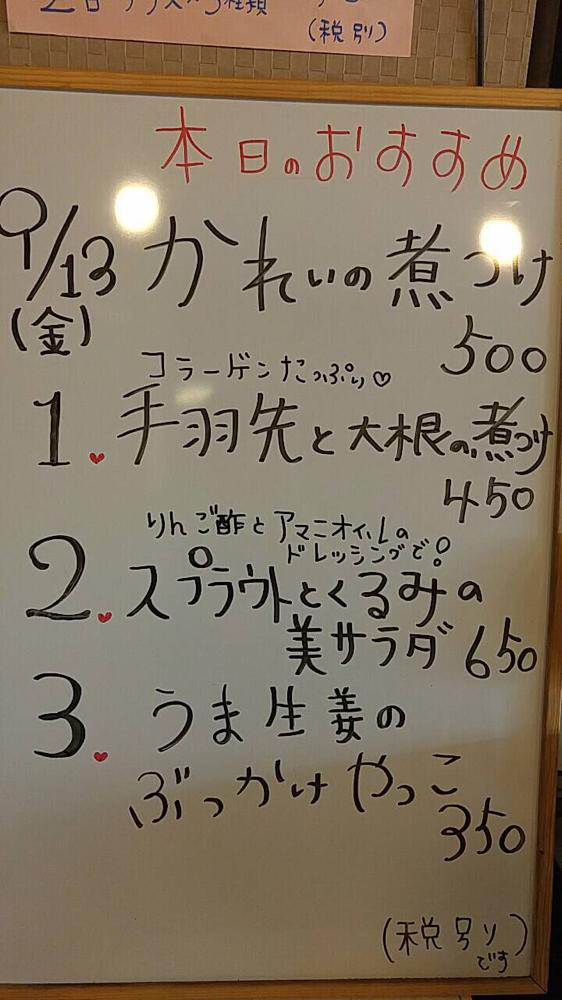 (税別)
本日のおすすめ
9/13 かれいの煮つけ
(金)
500
コラーゲンたっぷり♡
1.手羽先と大根の煮つけ
450
りんご酢とアマニオイルの
ドレッシングで!
2.スプラウトとくるみの
美サラダ 650
3.うま生姜の
ぶっかけやっこ
350
(税別りです)